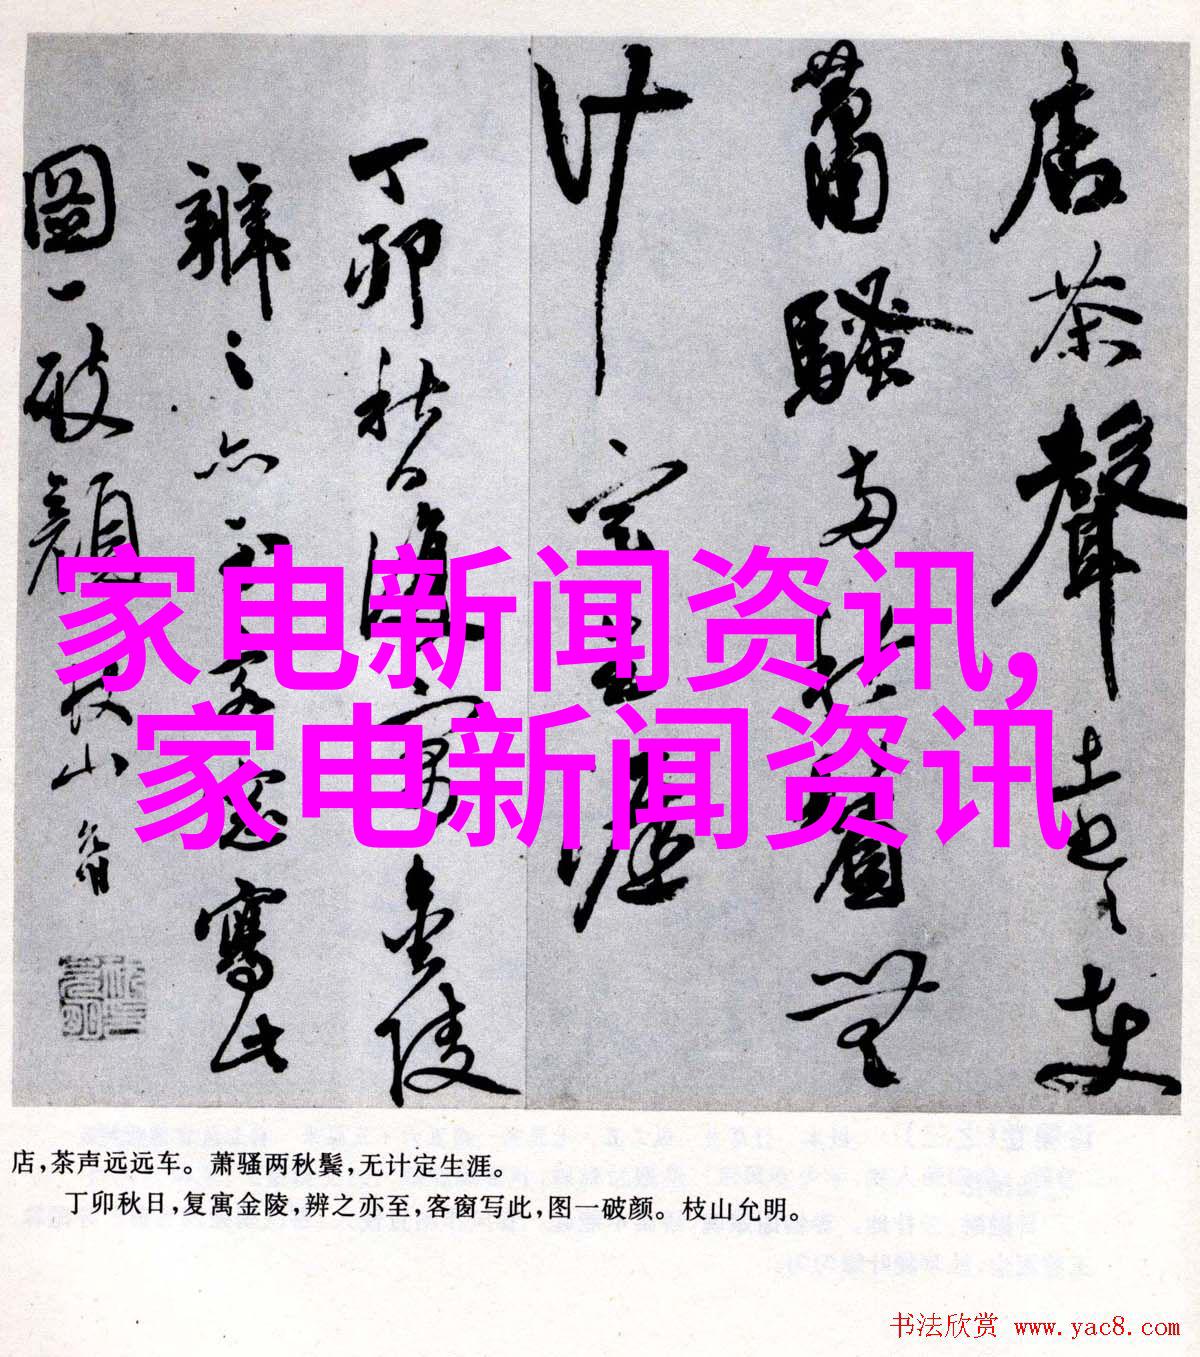 店茶聲遠遠車
蕭騷兩秋鬢無
计定生涯
丁卯秋日復寓金陵
辨之亦至客窓寫此
圖一破顏枝山允明
家电新闻资讯,
家电新闻资讯
店,茶声远远车。萧骚两秋鬓,无计定生涯。
丁卯秋日,复寓金陵,辨之亦至,客窗写此,图一破颜。枝山允明。
书法欣赏 www.yac8.com